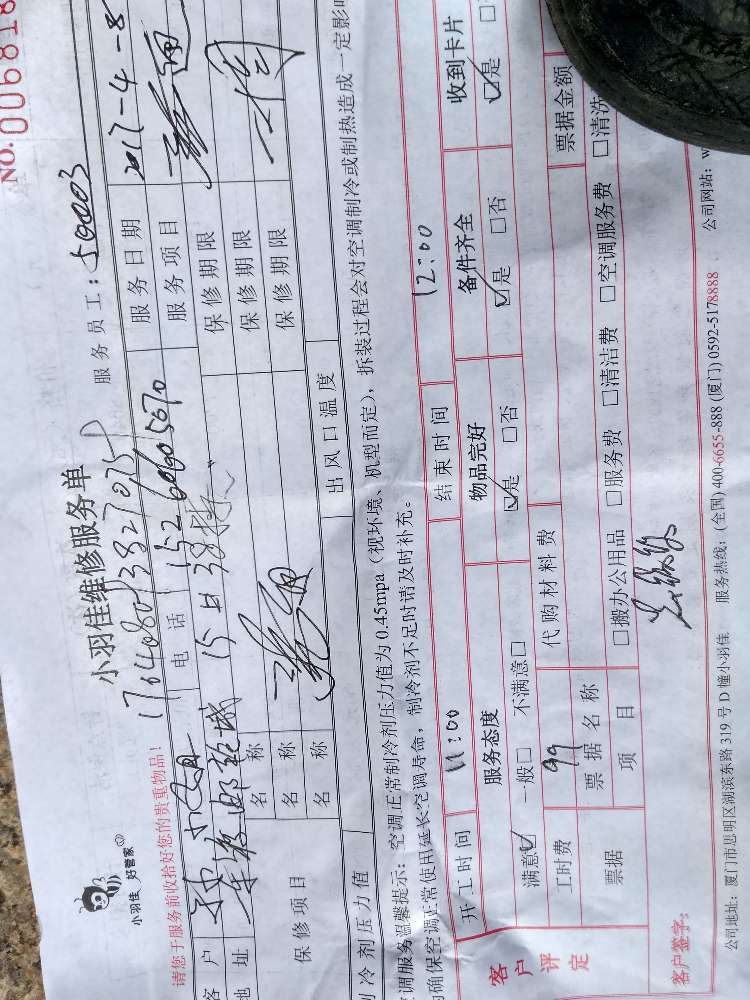 NO. 006818
小羽佳 好管家
小羽佳维修服务单
服务员工：50003
请您于服务前收拾好您的贵重物品！
176408073827075
客 户
电 话
15260605670
服务日期
2017-4-8
地 址
15
服务项目
保修项目
名 称
保修期限
名 称
保修期限
名 称
保修期限
制冷剂压力值
出风口温度
调服务温馨提示：空调正常制冷剂压力值为0.45mpa（视环境、机型而定），拆装过程会对空调制冷或制热造成一定影响
确保空调正常使用延长空调寿命，制冷剂不足时请及时补充。
开工时间
11:00
结束时间
12:00
客户评定
服务态度
物品完好
备件齐全
收到卡片
满意☑ 一般□ 不满意□
☑是 □否
☑是 □否
☑是 □
工时费
99
代购材料费
票据
票据名称
票据金额
项 目
□搬办公用品 □服务费 □清洁费 □空调服务费 □清洗
客户签字：
公司地址：厦门市思明区湖滨东路319号D幢小羽佳 服务热线：(全国) 400-6655-888 (厦门) 0592-5178888 公司网站：w